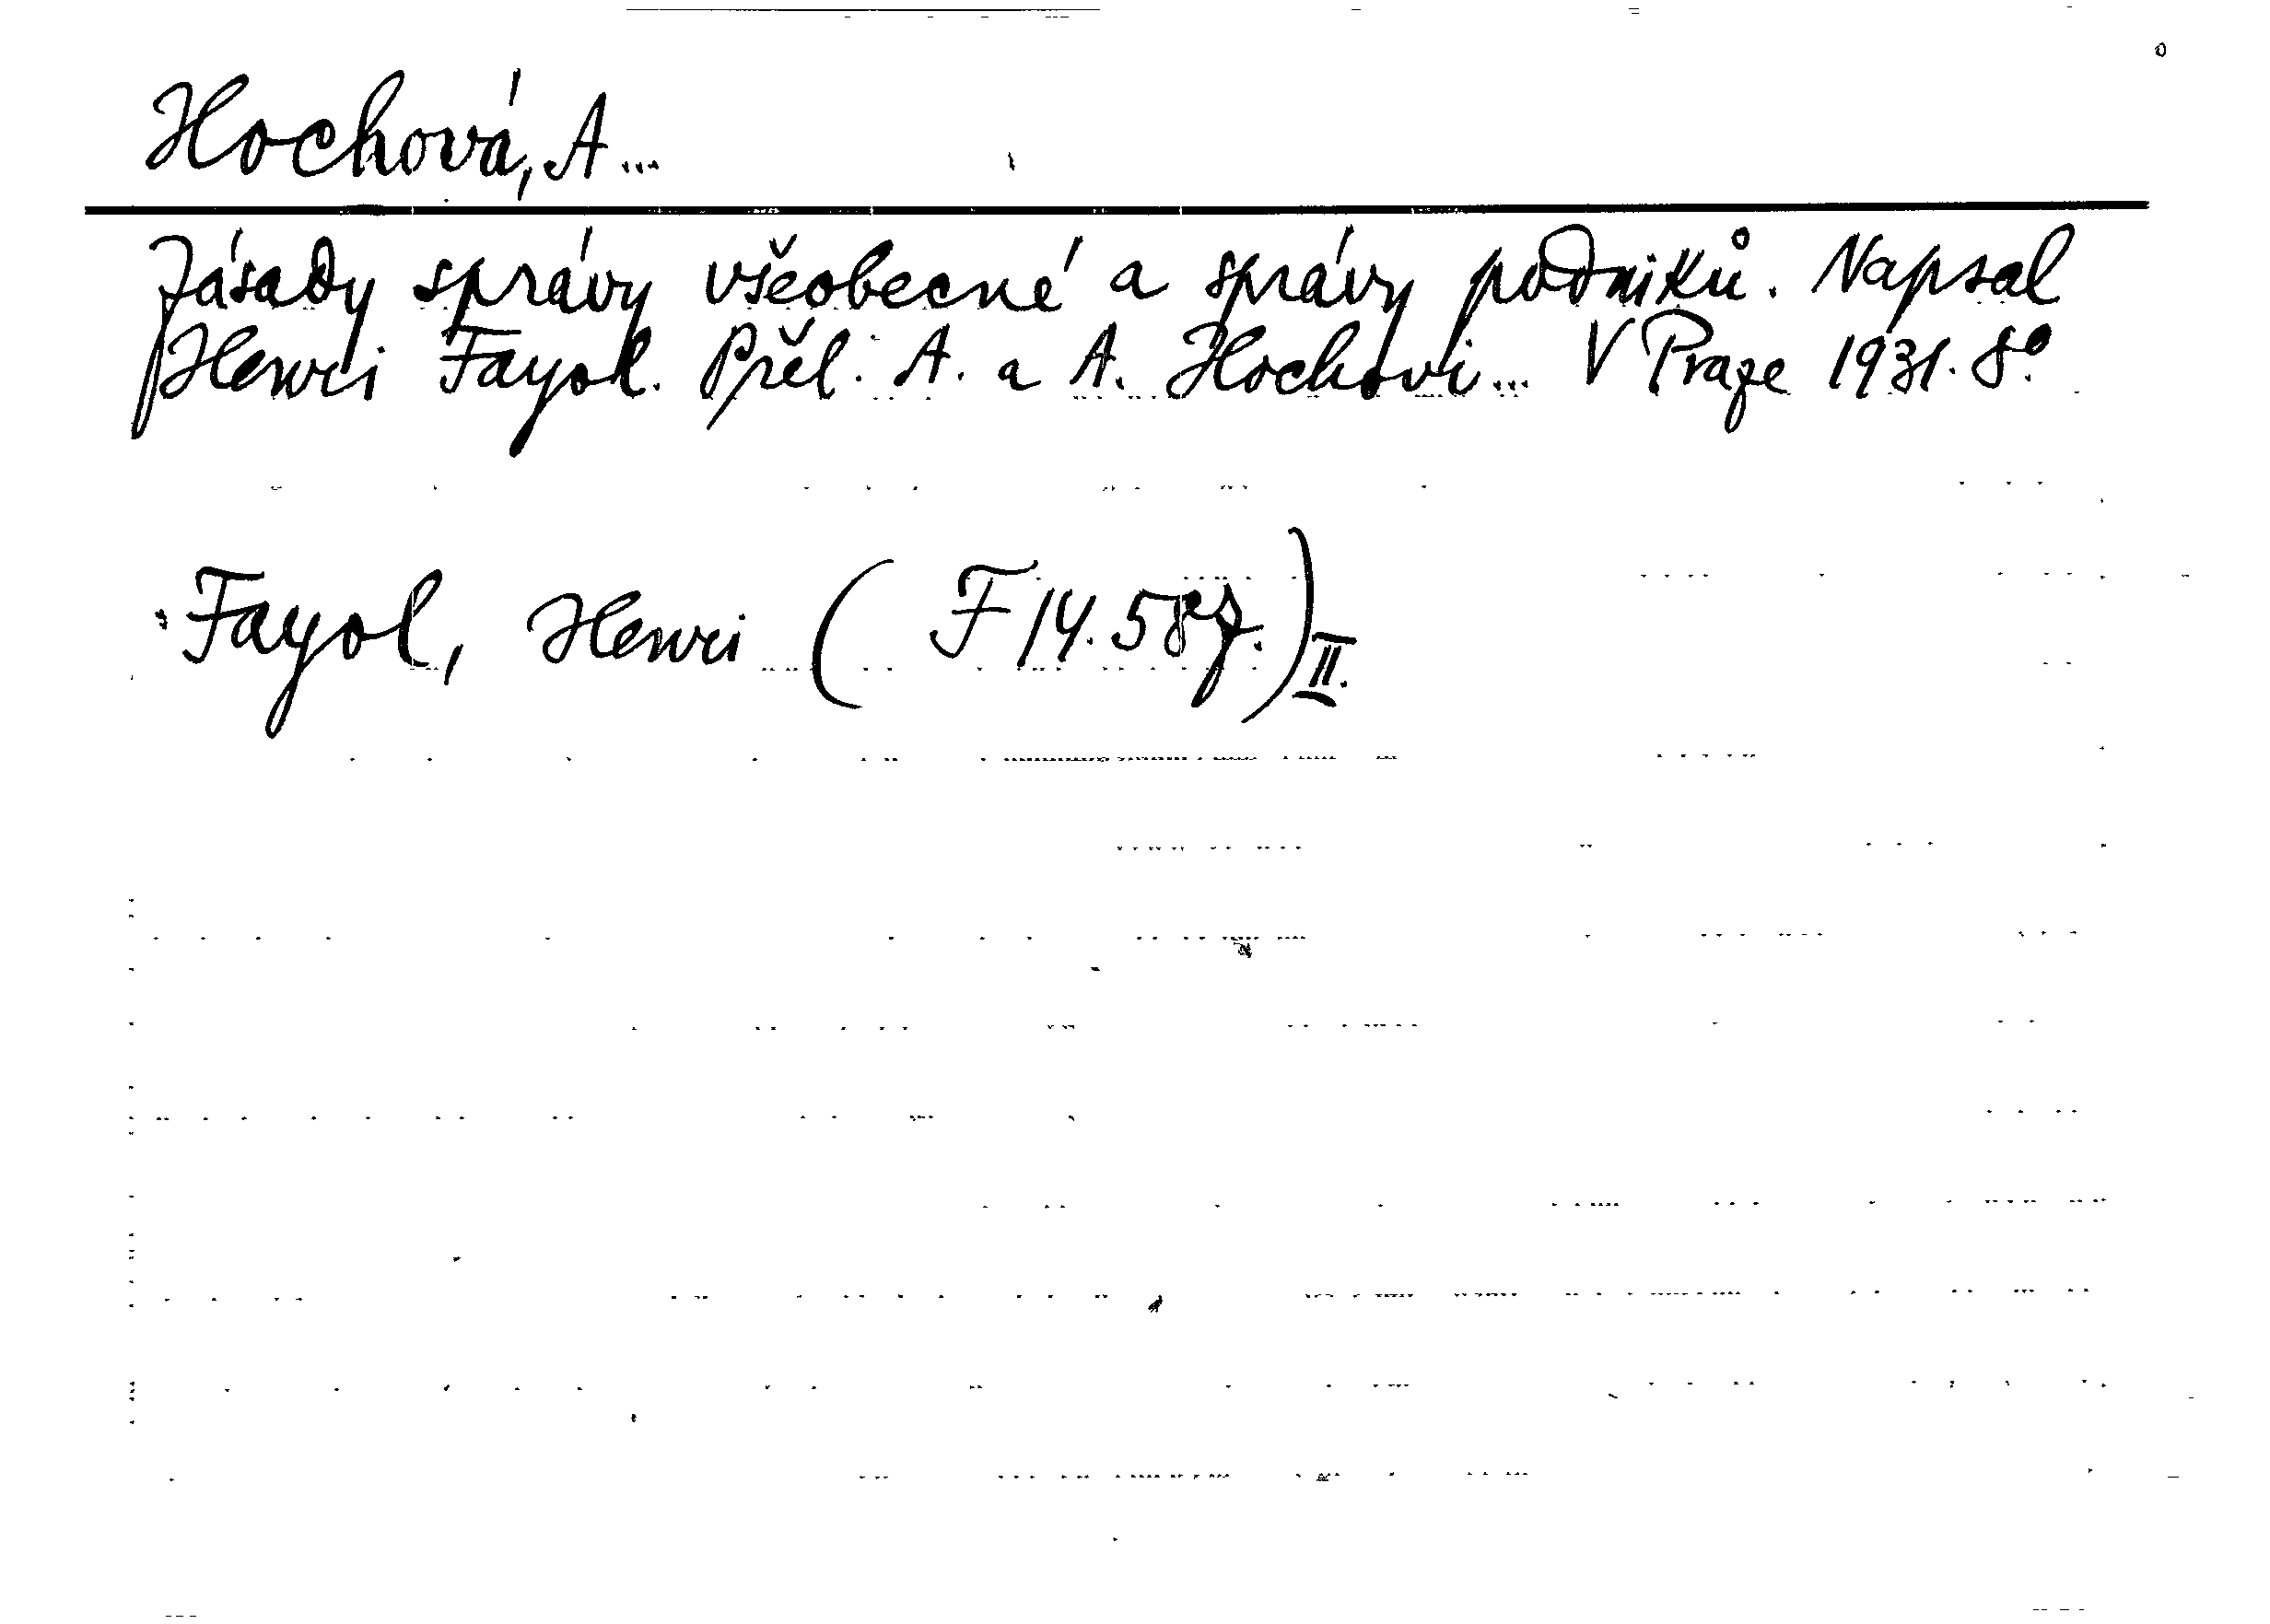 Hochová, A...
Zásady správy všeobecné a správy podniků. Napsal
Henri Fayol. Přel. A. a A. Hochovi... V Praze 1931. 8°.
Fayol, Henri ( F 14.587.) II.